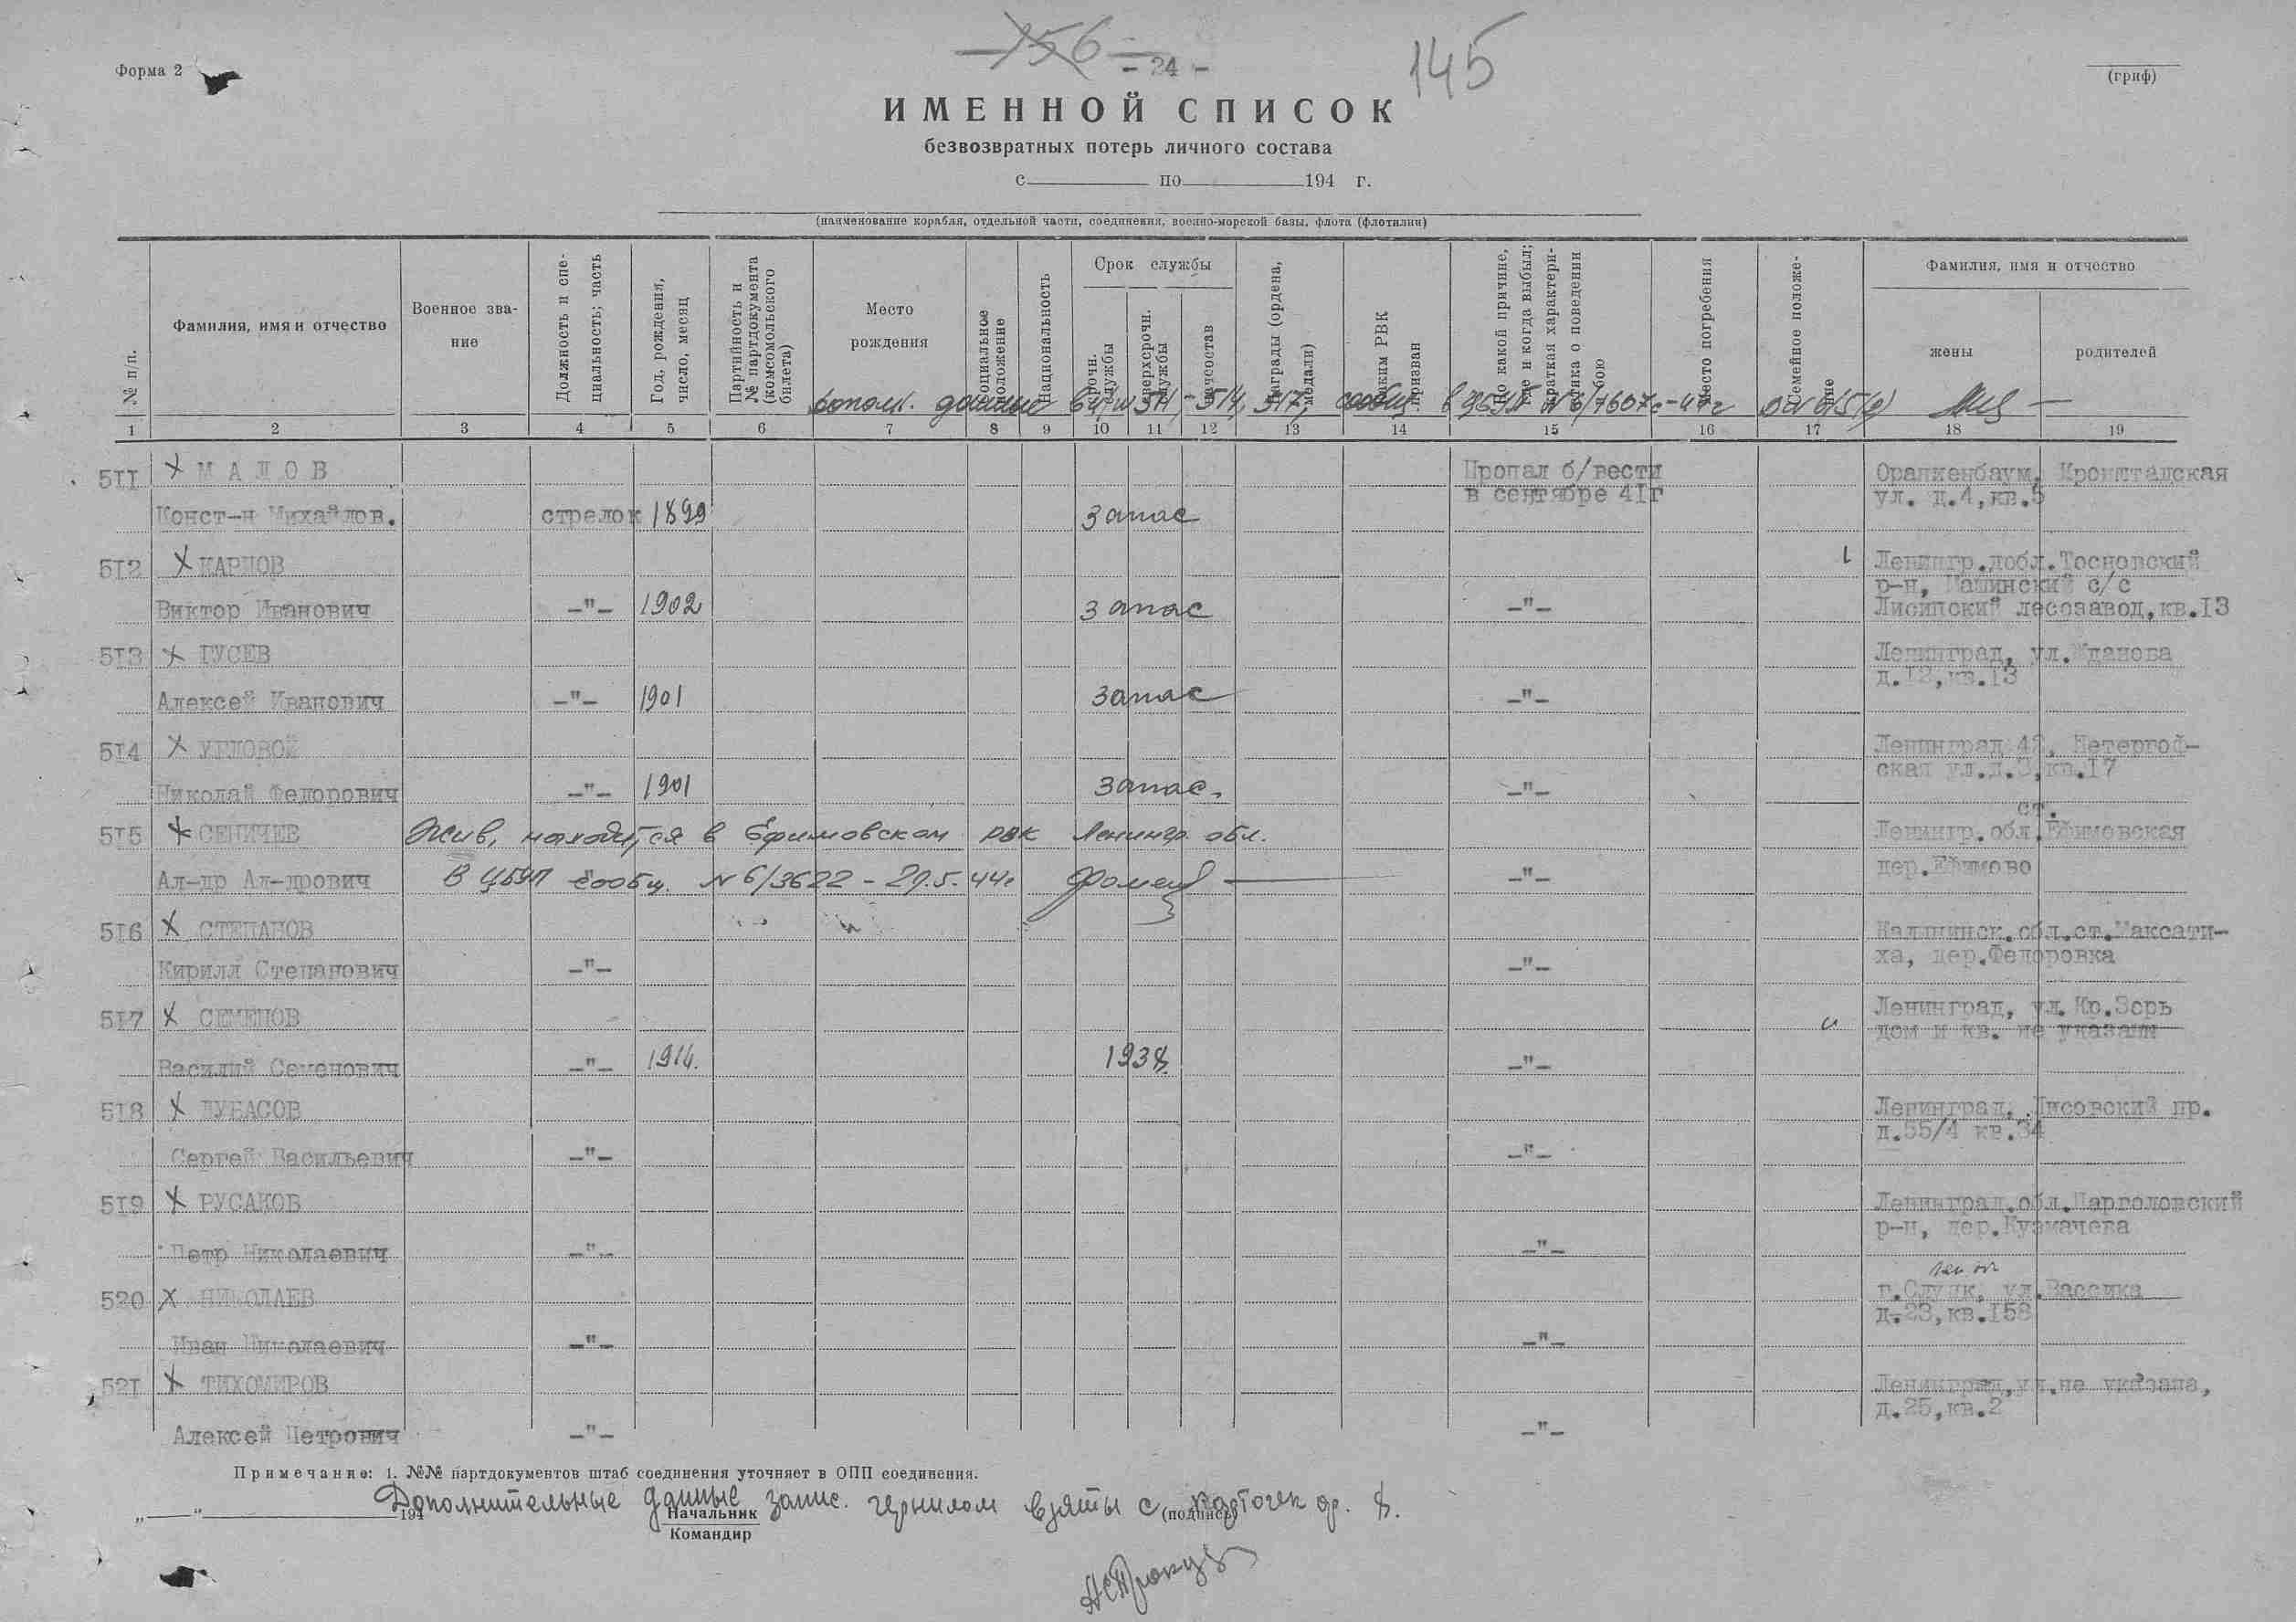 156
- 24 -
145
Форма 2
(гриф)
ИМЕННОЙ СПИСОК
безвозвратных потерь личного состава
с по 194 г.
(наименование корабля, отдельной части, соединения, военно-морской базы, флота (флотилии)
№ п/п.
Фамилия, имя и отчество
Военное зва-
ние
Должность и спе-
циальность; часть
Год, рождения,
число, месяц
Партийность и
№ партдокумента
(комсомольского
билета)
Место
рождения
Социальное
положение
Национальность
Срок службы
срочн.
службы
сверхсрочн.
службы
начсостав
Награды (ордена,
медали)
Каким РВК
призван
По какой причине,
где и когда выбыл;
краткая характери-
стика о поведении
в бою
Место погребения
Семейное положе-
ние
Фамилия, имя и отчество
жены
родителей
дополн. данные 511-514, 517, сообщ. в
1 2 3 4 5 6 7 8 9 10 11 12 13 14 15 16 17 18 19
511 х МАЛОВ Пропал б/вести Ораниенбаум, Кронштадская
в сентябре 41г ул. д.4,кв.5
Конст-н Михайлов. стрелок 1899 запас
512 х КАРПОВ Ленингр.добл.Тосновский
р-н, Машинский с/с
Виктор Иванович -"- 1902 запас -"- Лисинский лесозавод,кв.13
513 х ГУСЕВ Ленинград, ул.Жданова
д.12,кв.13
Алексей Иванович -"- 1901 запас -"-
514 х УГЛОВОЙ Ленинград 42, Петергоф-
ская ул.д.3,кв.17
Николай Федорович -"- 1901 запас. -"-
ст.
515 х СЕНИЧЕВ Жив, находится в Ефимовском РВК Ленингр. обл. Ленингр.обл.Ефимовская
Ал-др Ал-дрович В ЦБУП сообщ. № 6/3622 - 29.5.44г -"- дер.Ефимово
516 х СТЕПАНОВ Калининск.обл.ст.Максати-
Кирилл Степанович -"- -"- ха, дер.Федоровка
517 х СЕМЕНОВ Ленинград, ул.Кр.Зорь
дом и кв. не указаны
Василий Семенович -"- 1914. 1938. -"-
518 х ДУБАСОВ Ленинград, Лисовский пр.
д.55/4 кв.34
Сергей Васильевич -"- -"-
519 х РУСАКОВ Ленинград.обл.Парголовский
р-н, дер.Кузмачева
Петр Николаевич -"- -"-
520 х НИКОЛАЕВ г.Слуцк, ул.
д.23,кв.158
Иван Николаевич -"- -"-
521 х ТИХОМИРОВ Ленинград,ул.не указана,
д.25,кв.2
Алексей Петрович -"- -"-
Примечание: 1. №№ партдокументов штаб соединения уточняет в ОПП соединения.
Дополнительные данные запис. чернилом взяты с карточек ф. 8.
„ “ 194 Начальник (подпись)
Командир